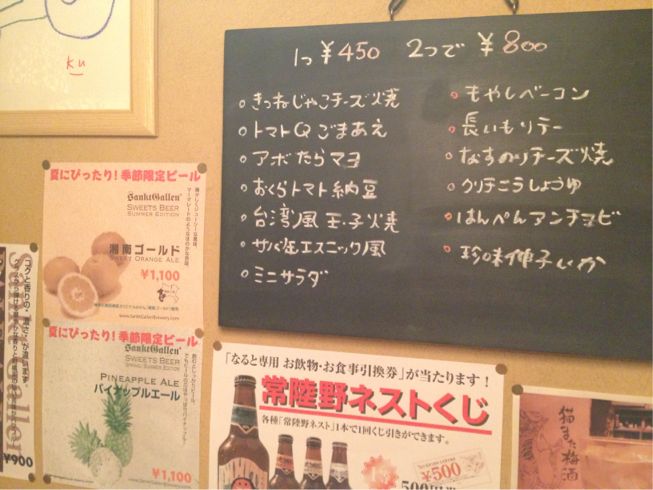 ku
1つ ¥450 2つで ¥800
。きつねじゃこチーズ焼
。トマトQごまあえ
。アボたらマヨ
。おくらトマト納豆
。台湾風玉子焼
。サバ缶エスニック風
。ミニサラダ
。もやしベーコン
。長いもソテー
。なすのりチーズ焼
。クリチこうしょうゆ
。はんぺんアンチョビ
。珍味伸子いか
夏にぴったり!季節限定ビール
SanktGallen
SWEETS BEER
SUMMER EDITION
湘南ゴールド
SWEET ORANGE ALE
¥1,100
www.SanktGallenBrewery.com
夏にぴったり!季節限定ビール
SanktGallen
SWEETS BEER
SPRING/SUMMER EDITION
PINEAPPLE ALE
パイナップルエール
¥1,100
¥900
「なると専用 お飲物・お食事引換券」が当たります!
常陸野ネストくじ
各種「常陸野ネスト」1本で1回くじ引きができます。
¥500
500円券
猫また梅酒